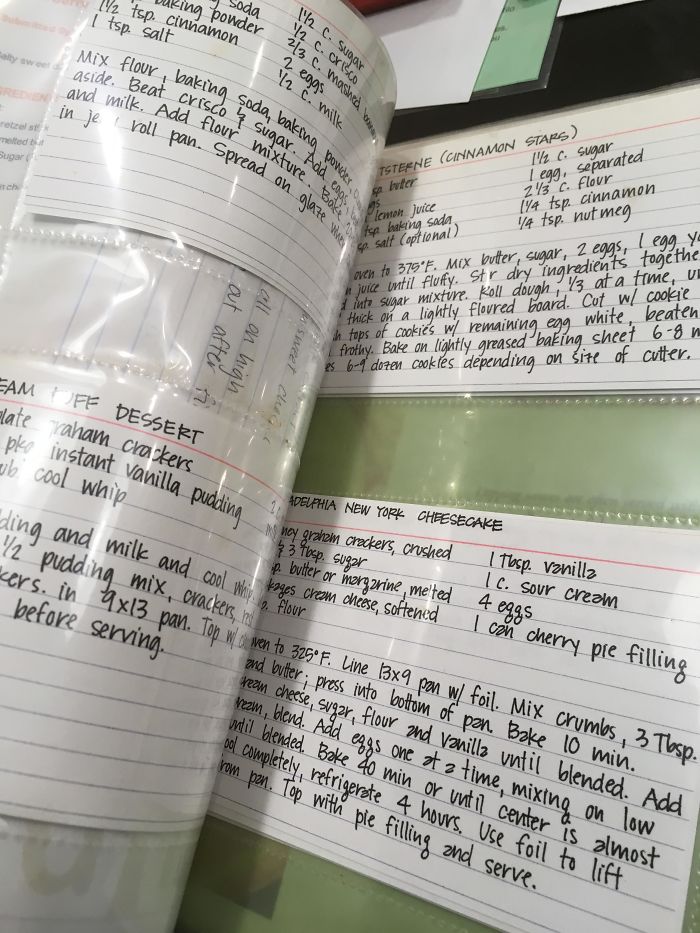 soda
baking powder
1 1/2 tsp. cinnamon
1 tsp. salt
1 1/2 c. sugar
1/2 c. crisco
2/3 c. mashed
2 eggs
1/2 c. milk
Mix flour, baking soda, baking powder,
aside. Beat crisco & sugar. Add eggs,
and milk. Add flour mixture. Bake
in jelly roll pan. Spread on glaze
Submitted By
TSTERNE (CINNAMON STARS)
butter
lemon juice
tsp. baking soda
sp. salt (optional)
1 1/2 c. sugar
1 egg, separated
2 1/3 c. flour
1 1/4 tsp. cinnamon
1/4 tsp. nutmeg
oven to 375°F. Mix butter, sugar, 2 eggs, 1 egg
juice until fluffy. Stir dry ingredients
into sugar mixture. Roll dough, 1/3 at a time,
thick on a lightly floured board. Cut w/ cookie
tops of cookies w/ remaining egg white, beaten
frothy. Bake on lightly greased baking sheet 6-8
6-9 dozen cookies depending on size of cutter.
on high
out after
EAM PUFF DESSERT
graham crackers
pkg instant vanilla pudding
cool whip
pudding and milk and cool whip
1/2 pudding mix, crackers,
in 9x13 pan. Top w/
before serving.
ADELPHIA NEW YORK CHEESECAKE
graham crackers, crushed
3 Tbsp. sugar
butter or margarine, melted
cream cheese, softened
flour
1 Tbsp. vanilla
1 c. sour cream
4 eggs
1 can cherry pie filling
oven to 325°F. Line 13x9 pan w/ foil. Mix crumbs, 3 Tbsp.
and butter; press into bottom of pan. Bake 10 min.
cream cheese, sugar, flour and vanilla until blended. Add
cream, blend. Add eggs one at a time, mixing on low
until blended. Bake 40 min or until center is almost
completely, refrigerate 4 hours. Use foil to lift
from pan. Top with pie filling and serve.